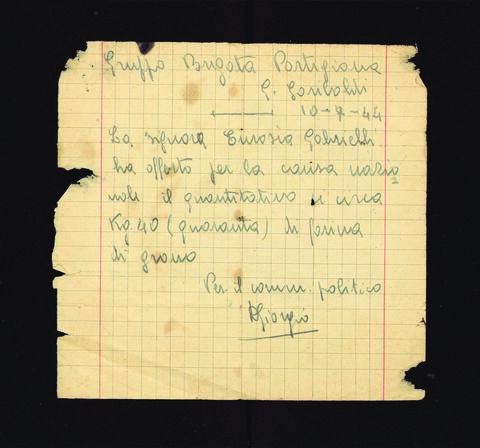 Gruppo Brigata Partigiana
G. Garibaldi
10-9-44
La signora Eurosia Gabrielli
ha offerto per la causa nazio
nale il quantitativo di circa
Kg. 40 (quaranta) di farina
di grano
Per il comm. politico
Giorgio